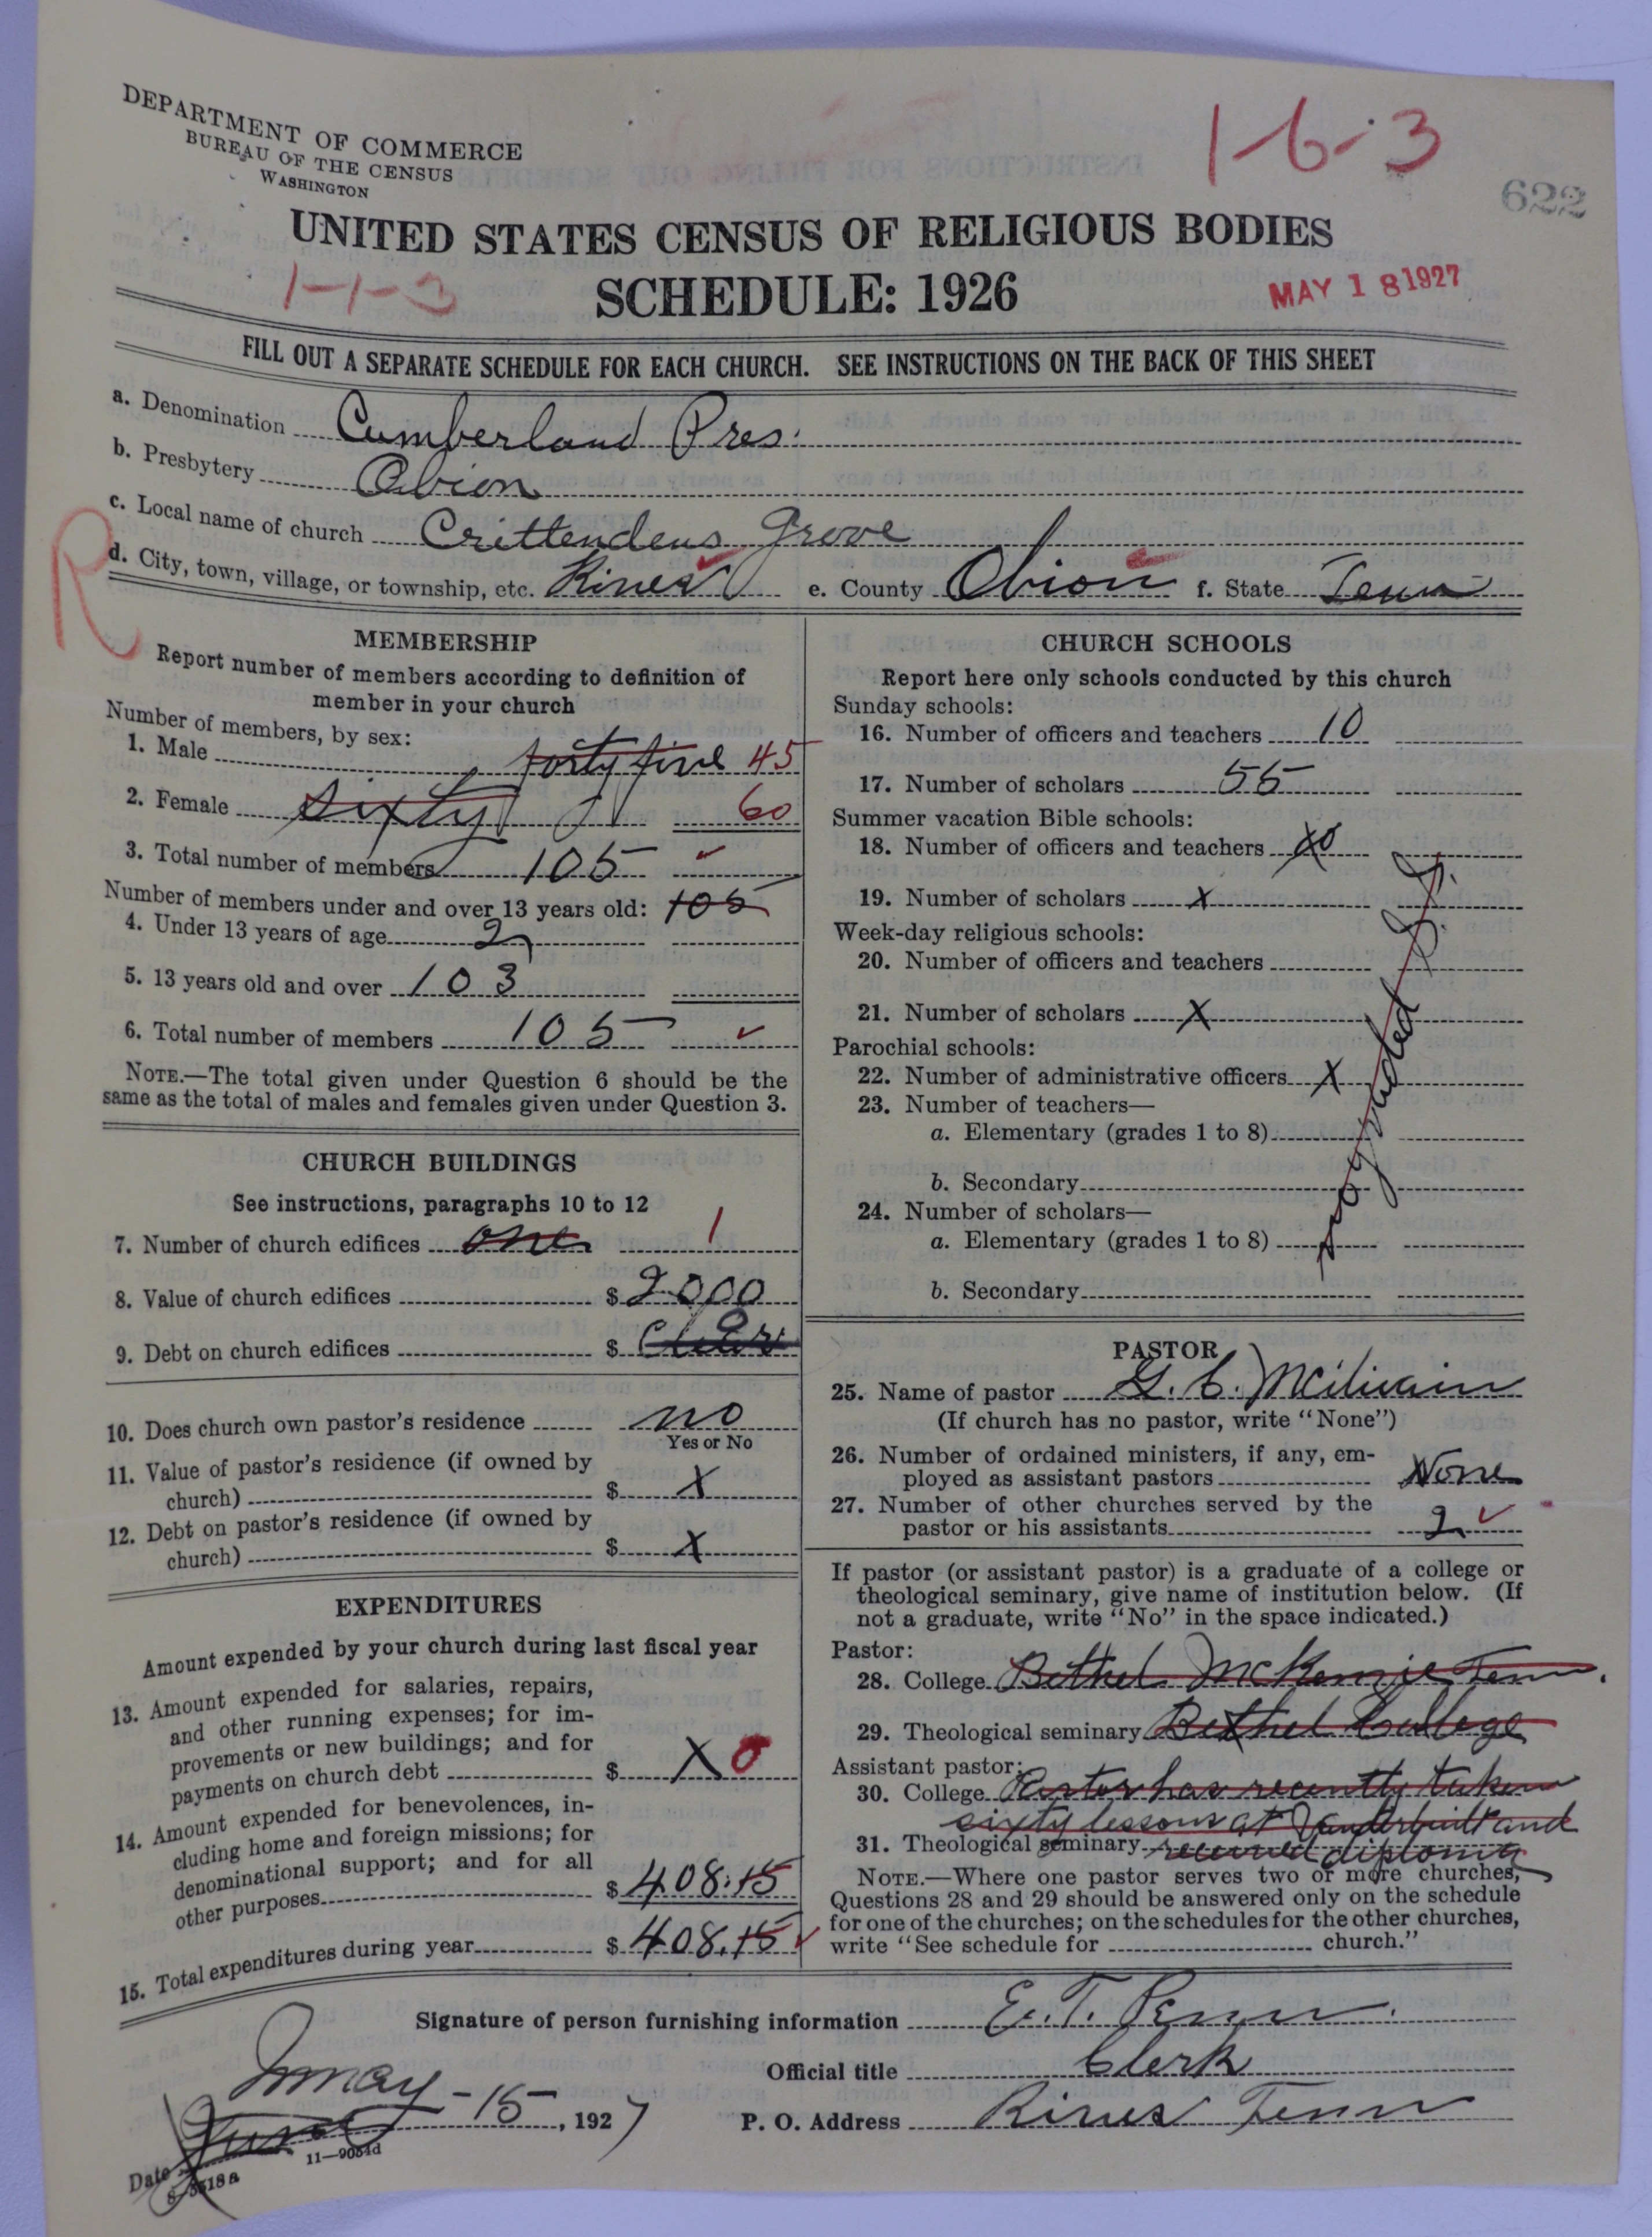 DEPARTMENT OF COMMERCE
BUREAU OF THE CENSUS
WASHINGTON
1-6-3
622
UNITED STATES CENSUS OF RELIGIOUS BODIES
1-1-3
SCHEDULE: 1926
MAY 18 1927
FILL OUT A SEPARATE SCHEDULE FOR EACH CHURCH. SEE INSTRUCTIONS ON THE BACK OF THIS SHEET
a. Denomination Cumberland Pres.
b. Presbytery Obion
c. Local name of church Crittendens Grove
R
d. City, town, village, or township, etc. Rives e. County Obion f. State Tenn
MEMBERSHIP
Report number of members according to definition of
member in your church
Number of members, by sex:
1. Male forty five 45
2. Female sixty 60
3. Total number of members 105 ✓
Number of members under and over 13 years old: 105
4. Under 13 years of age 2
5. 13 years old and over 103
6. Total number of members 105 ✓
NOTE.—The total given under Question 6 should be the
same as the total of males and females given under Question 3.
CHURCH BUILDINGS
See instructions, paragraphs 10 to 12
7. Number of church edifices one 1
8. Value of church edifices $ 2000
9. Debt on church edifices $ Clear
10. Does church own pastor's residence no
Yes or No
11. Value of pastor's residence (if owned by
church) $ X
12. Debt on pastor's residence (if owned by
church) $ X
EXPENDITURES
Amount expended by your church during last fiscal year
13. Amount expended for salaries, repairs,
and other running expenses; for im-
provements or new buildings; and for
payments on church debt $ X 0
14. Amount expended for benevolences, in-
cluding home and foreign missions; for
denominational support; and for all
other purposes $ 408.15
15. Total expenditures during year $ 408.15 ✓
CHURCH SCHOOLS
Report here only schools conducted by this church
Sunday schools:
16. Number of officers and teachers 10
17. Number of scholars 55
Summer vacation Bible schools:
18. Number of officers and teachers X0
19. Number of scholars X
Week-day religious schools:
20. Number of officers and teachers
21. Number of scholars X
Parochial schools:
22. Number of administrative officers X
23. Number of teachers—
a. Elementary (grades 1 to 8)
b. Secondary
24. Number of scholars—
a. Elementary (grades 1 to 8)
b. Secondary
no graded S.S.
PASTOR
25. Name of pastor G. C. McIlwain
(If church has no pastor, write "None")
26. Number of ordained ministers, if any, em-
ployed as assistant pastors None
27. Number of other churches served by the
pastor or his assistants 2 ✓
If pastor (or assistant pastor) is a graduate of a college or
theological seminary, give name of institution below. (If
not a graduate, write "No" in the space indicated.)
Pastor:
28. College Bethel McKenzie Tenn.
29. Theological seminary Bethel College
Assistant pastor:
30. College Pastor has recently taken
sixty lessons at Vanderbuilt and
31. Theological seminary received diploma
NOTE.—Where one pastor serves two or more churches,
Questions 28 and 29 should be answered only on the schedule
for one of the churches; on the schedules for the other churches,
write "See schedule for church."
Signature of person furnishing information E. T. Penn
Official title Clerk
P. O. Address Rives Tenn
May - 15, 1927
Date June
8-5518a
11—9054d